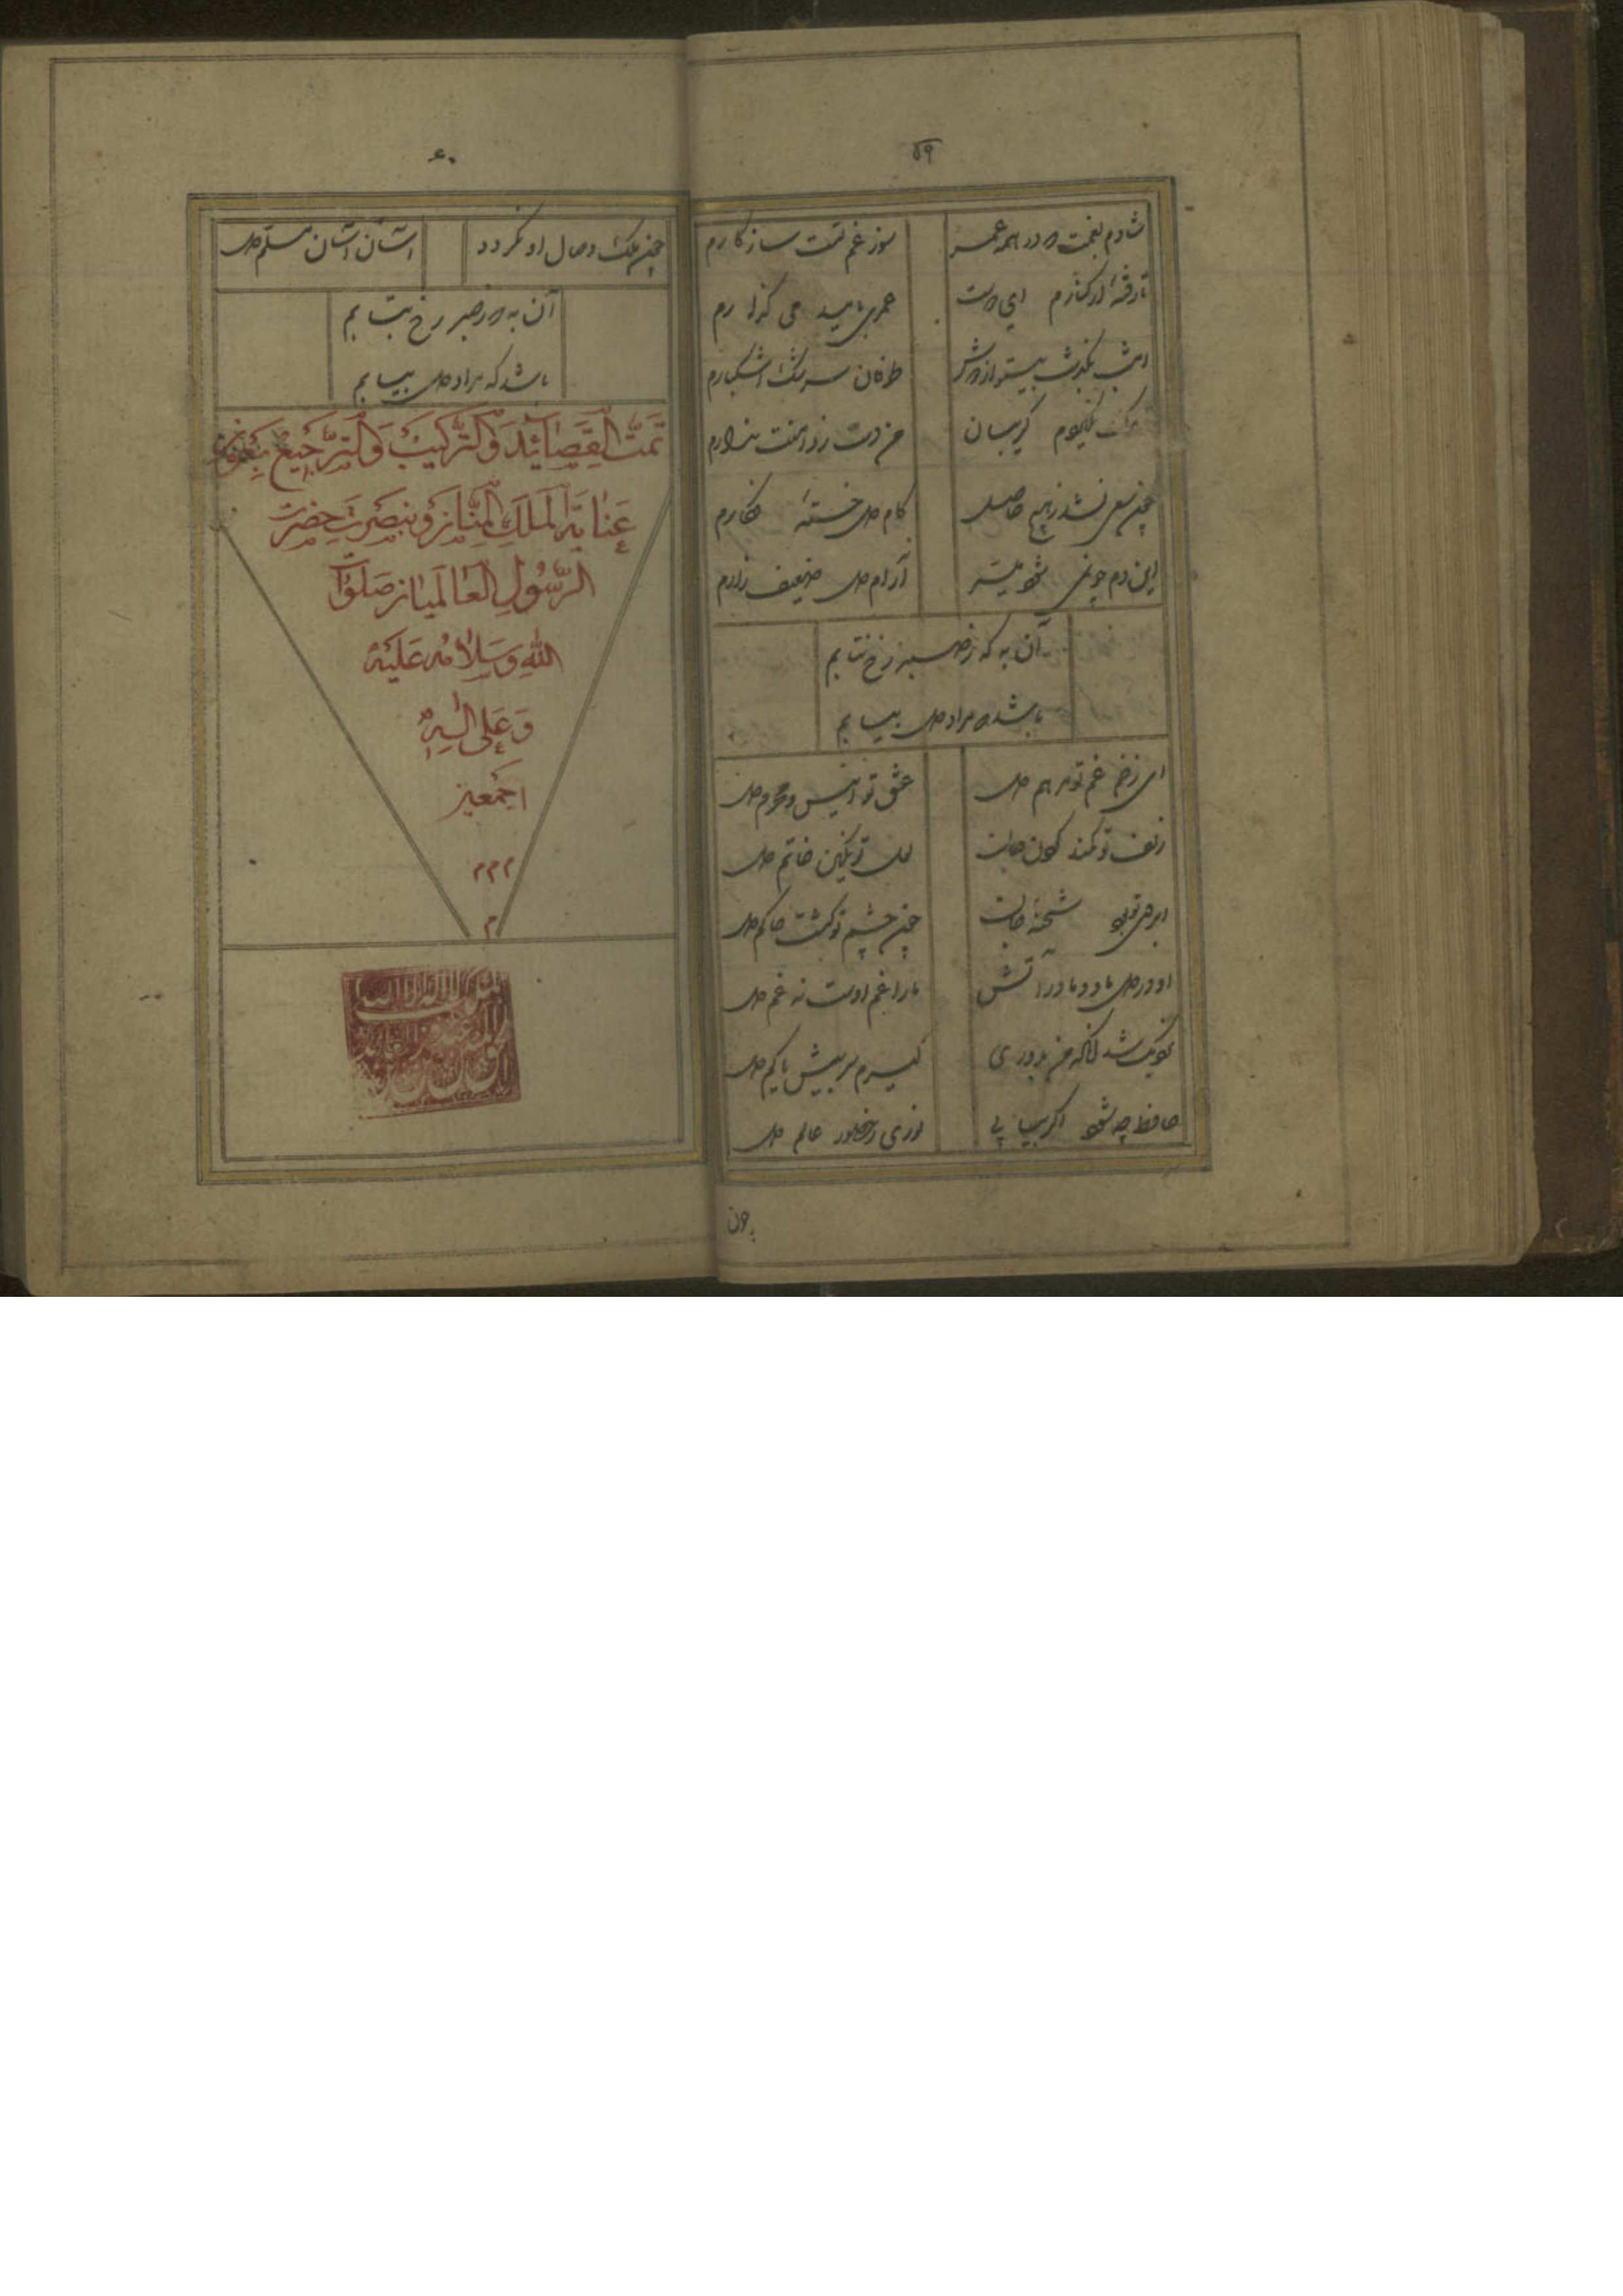 ۵۹
شادم بغمت که در همه عمر
سوز غم تست سازکارم
تا رفتهٔ از کنارم ای دوست
عمری بامید می گذارم
امشب بگذشت بیستو از دوش
طوفان سرشک اشکبارم
گریبان
من دست ز دامنت ندارم
چون سعی نشد ز هیچ حاصل
کام دل خستهٔ فکارم
این دم چو نمی شود میسر
آرام دل ضعیف زارم
آن به که ز صبر رخ نتابم
باشد که مراد دل بیابم
ای زخم غم تو مرهم دل
عشق تو انیس و محرم دل
زلف تو کمند کردن جانت
لعل تو نکین خاتم دل
ابروی تو بود شحنهٔ جانت
چون چشم تو کشت حاکم دل
او در دل ما و ما در آتش
ما را غم اوست نه غم دل
کر نیک شد آنکه من بدوری
کیرم سر بیش یا کم دل
حافظ چه شود اکر بیابی
نوری ز حضور عالم دل
چون
۶۰
چون ملک وصال او نکردد
آسان آسان مسلم دل
آن به که ز صبر رخ نتابم
باشد که مراد دل بیابم
تَمَّتْ الْقَصَائِدَ وَالتَّرْكِيبْ وَالتَّرْجِيعْ بِعَوْنِ
عَنَايَةِ الْمَلَكِ الْمَنَّانِ وَبِنُصْرَتِ حَضْرَتِ
الرَّسُولِ الْعَالَمِيَانِ صَلَوَاتُ
اللهِ وَسَلَامُهُ عَلَيْهِ
وَعَلَى آلِهِ
اَجْمَعِينْ
م م م
م